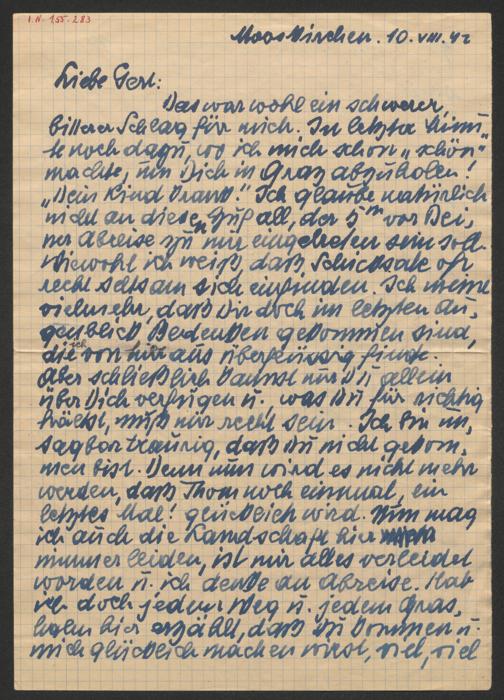 I.N. 155.283
Mooskirchen. 10. VIII. 42
Liebe Gert:
Das war wohl ein schwerer,
bitterer Schlag für mich. In letzter Minu-
te noch dazu, wo ich mich schon „schön"
machte, um Dich in Graz abzuholen!
„Dein Kind krank!" Ich glaube natürlich
nicht an diesen Zufall, der 5m vor Dei-
ner Abreise zu nur eingetreten sein soll.
Wiewohl ich weiß, daß Schicksale oft
recht seltsam sich einfinden. Ich meine
vielmehr, daß Dir doch im letzten Au-
genblick Bedenken gekommen sind,
die ich von mir aus überflüssig finde.
Aber schließlich kannst nur Du allein
über Dich verfügen u. was Du für richtig
hältst, muß mir recht sein. Ich bin un-
sagbar traurig, daß Du nicht gekom-
men bist. Denn nun wird es nicht mehr
werden, daß Thom noch einmal, ein
letztes Mal! glücklich wird. Nun mag
ich auch die Landschaft hier
nimmer leiden, ist mir alles verleidet
worden u. ich denke an Abreise. Hab
ich doch jedem Weg u. jedem Gras-
halm hier erzählt, daß Du kommen u.
mich glücklich machen wirst, viel, viel